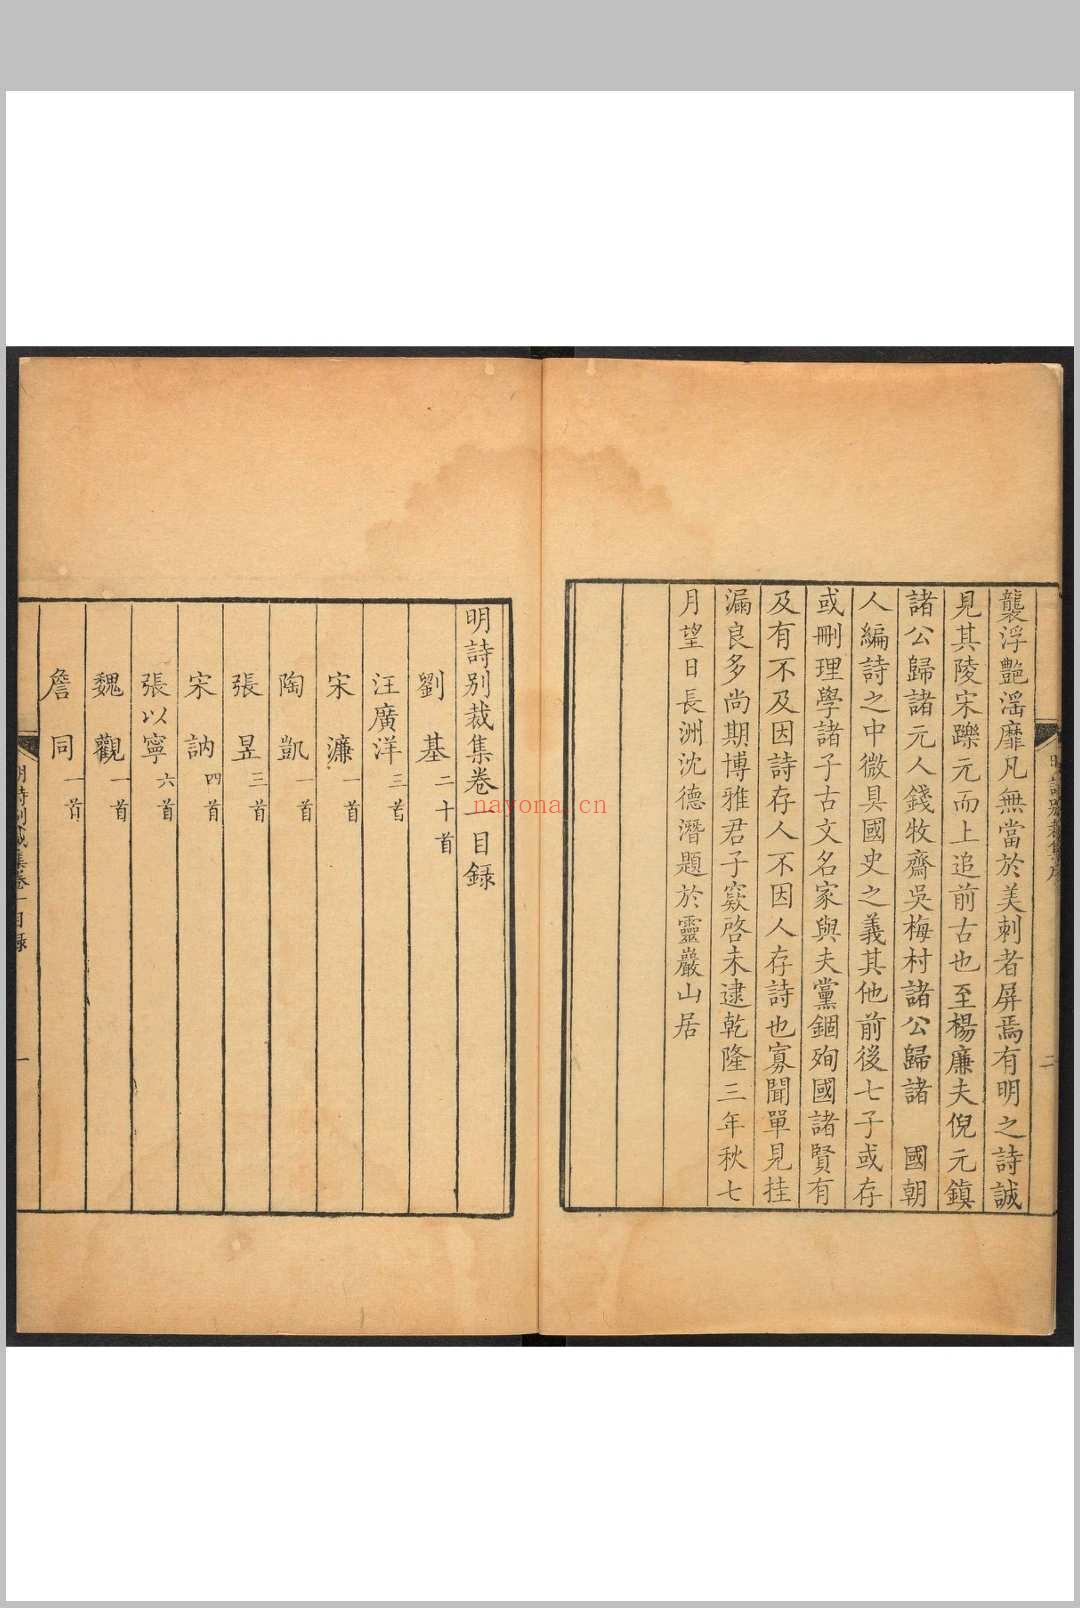 襲浮艷淫靡凡無當於美刺者屏焉有明之詩誠
見其陵宋躒元而上追前古也至楊廉夫倪元鎮
諸公歸諸元人錢牧齋吳梅村諸公歸諸　國朝
人編詩之中微具國史之義其他前後七子或存
或刪理學諸子古文名家與夫黨錮殉國諸賢有
及有不及因詩存人不因人存詩也寡聞單見挂
漏良多尚期博雅君子窾啓未逮乾隆三年秋七
月望日長洲沈德潛題於靈巖山居
二
明詩别裁集卷一目録
劉基 二十首
汪廣洋 三首
宋濂 一首
陶凱 一首
張昱 三首
宋訥 四首
張以寧 六首
魏觀 一首
詹同 一首
明詩别裁集卷一目録
一
nayona.cn